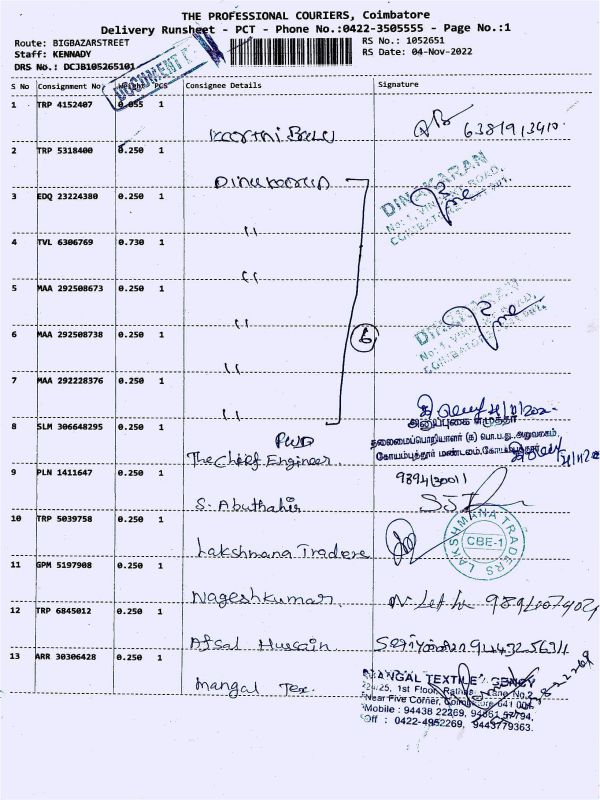 THE PROFESSIONAL COURIERS, Coimbatore
Delivery Runsheet - PCT - Phone No.:0422-3505555 - Page No.:1
Route: BIGBAZARSTREET RS No.: 1052651
Staff: KENNADY RS Date: 04-Nov-2022
DRS No.: DCJB105265101
DOCUMENT
S No Consignment No. Weight PCS Consignee Details Signature
1 TRP 4152407 0.055 1
Karthi Balu 6381913410
2 TRP 5318400 0.250 1
Dinakaran DINAKARAN
3 EDQ 23224380 0.250 1
"
4 TVL 6306769 0.730 1
"
5 MAA 292508673 0.250 1
" DINAKARAN
6 MAA 292508738 0.250 1
6
"
7 MAA 292228376 0.250 1
"
8 SLM 306648295 0.250 1
PWD
The Chief Engineer
அனுப்புகை எழுத்தர்
தலைமைப்பொறியாளர் (க) பொ.ப.து.,அலுவலகம்,
கோயம்புத்தூர் மண்டலம்,கோயம்புத்தூர்
9 PLN 1411647 0.250 1
9894130011
S. Abuthahir
10 TRP 5039758 0.250 1
Lakshmana Traders LAKSHMANA TRADERS CBE-1
11 GPM 5197908 0.250 1
Nageshkumar
12 TRP 6845012 0.250 1
Afsal Hussain
13 ARR 30306428 0.250 1
Mangal Tex.
MANGAL TEXTILE AGENCY
1st Floor, Lane No.2,
Near Five Corner, Coimbatore 641 001
Mobile : 94438 22269, 94861 57794,
Off : 0422-4952269, 9443779363.